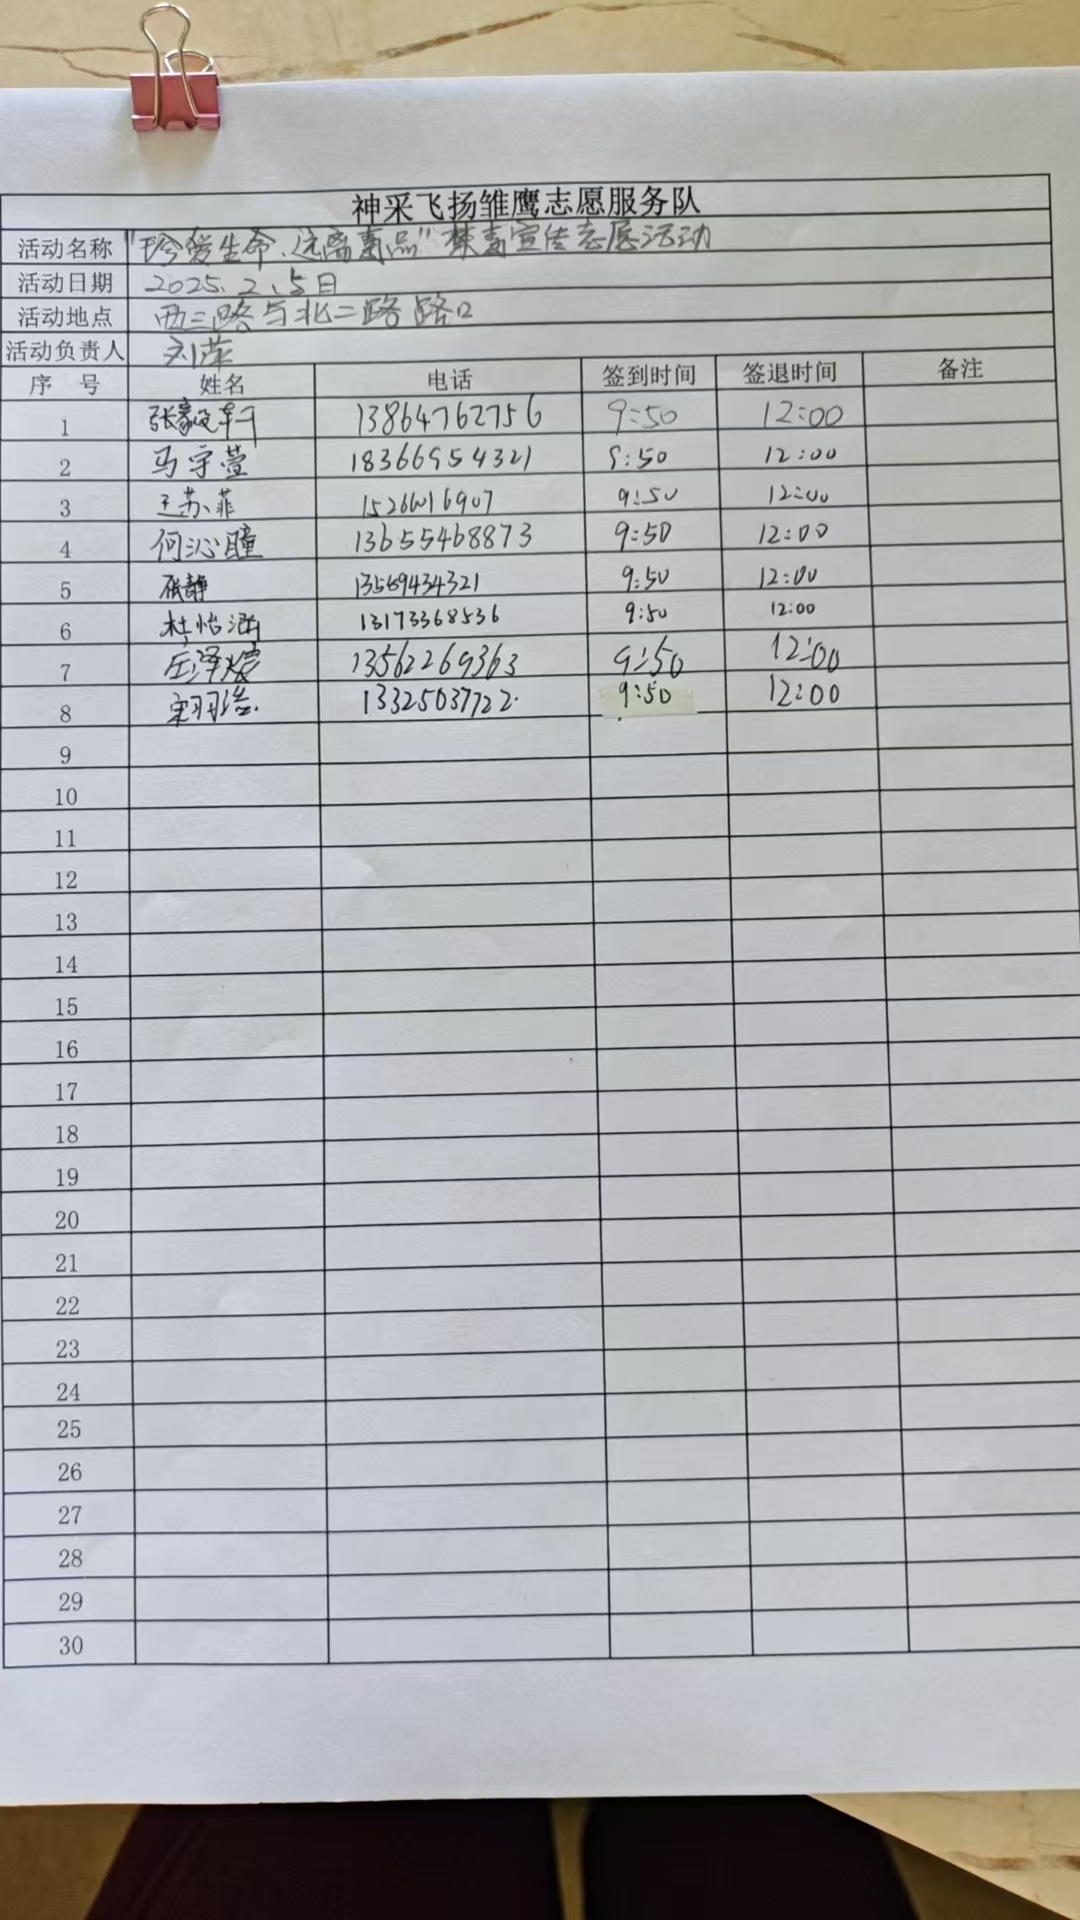 神采飞扬雏鹰志愿服务队
活动名称 "珍爱生命、远离毒品"禁毒宣传志愿活动
活动日期 2025.2.5日
活动地点 西三路与北二路路口
活动负责人 刘萍
序 号 姓名 电话 签到时间 签退时间 备注
1 13864762756 9:50 12:00
2 马宇萱 18366954321 9:50 12:00
3 王苏菲 9:50 12:00
4 何沁瞳 13655468873 9:50 12:00
5 张静 13569434321 9:50 12:00
6 杜怡涵 13173368536 9:50 12:00
7 13562269363 9:50 12:00
8 13325037722. 9:50 12:00
9
10
11
12
13
14
15
16
17
18
19
20
21
22
23
24
25
26
27
28
29
30